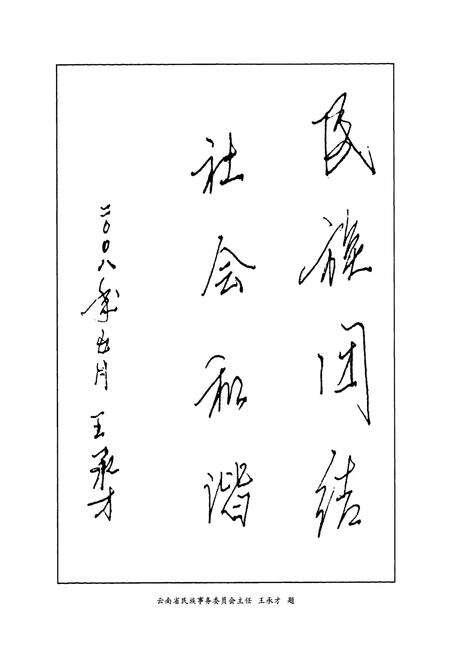 民族团结
社会和谐
二００八年五月 王承才
云南省民族事务委员会主任 王承才 题